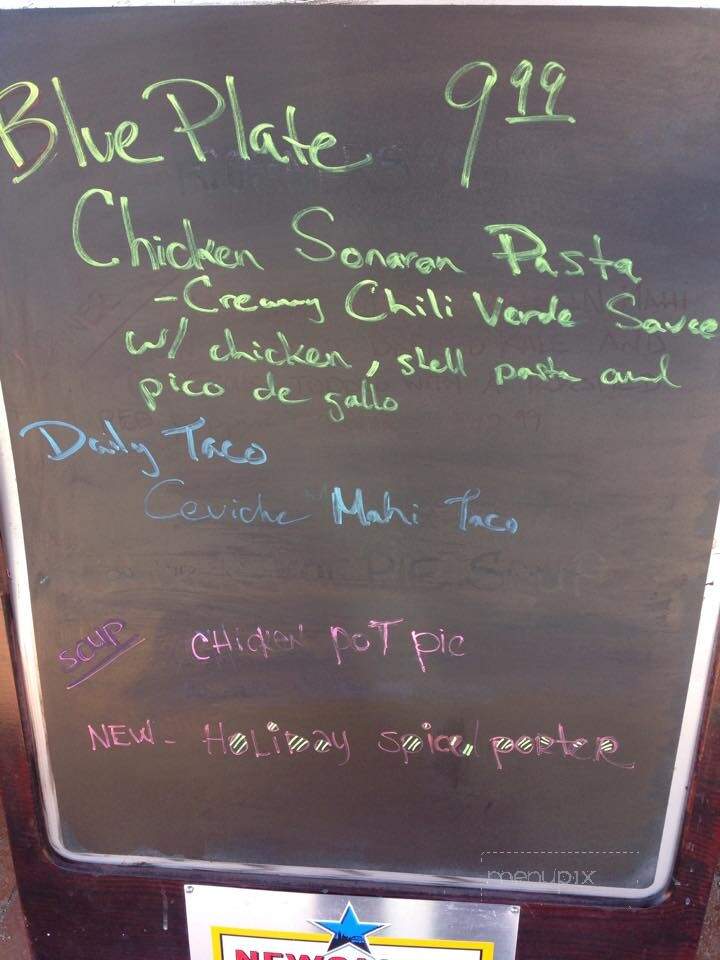 Blue Plate 9 99
Chicken Sonaran Pasta
- Creamy Chili Verde Sauce
w/ chicken, shell pasta and
pico de gallo
Daily Taco
Ceviche Mahi Taco
SOUP CHICKEN POT PIE
NEW - HOLIDAY SPICE PORTER
menupix